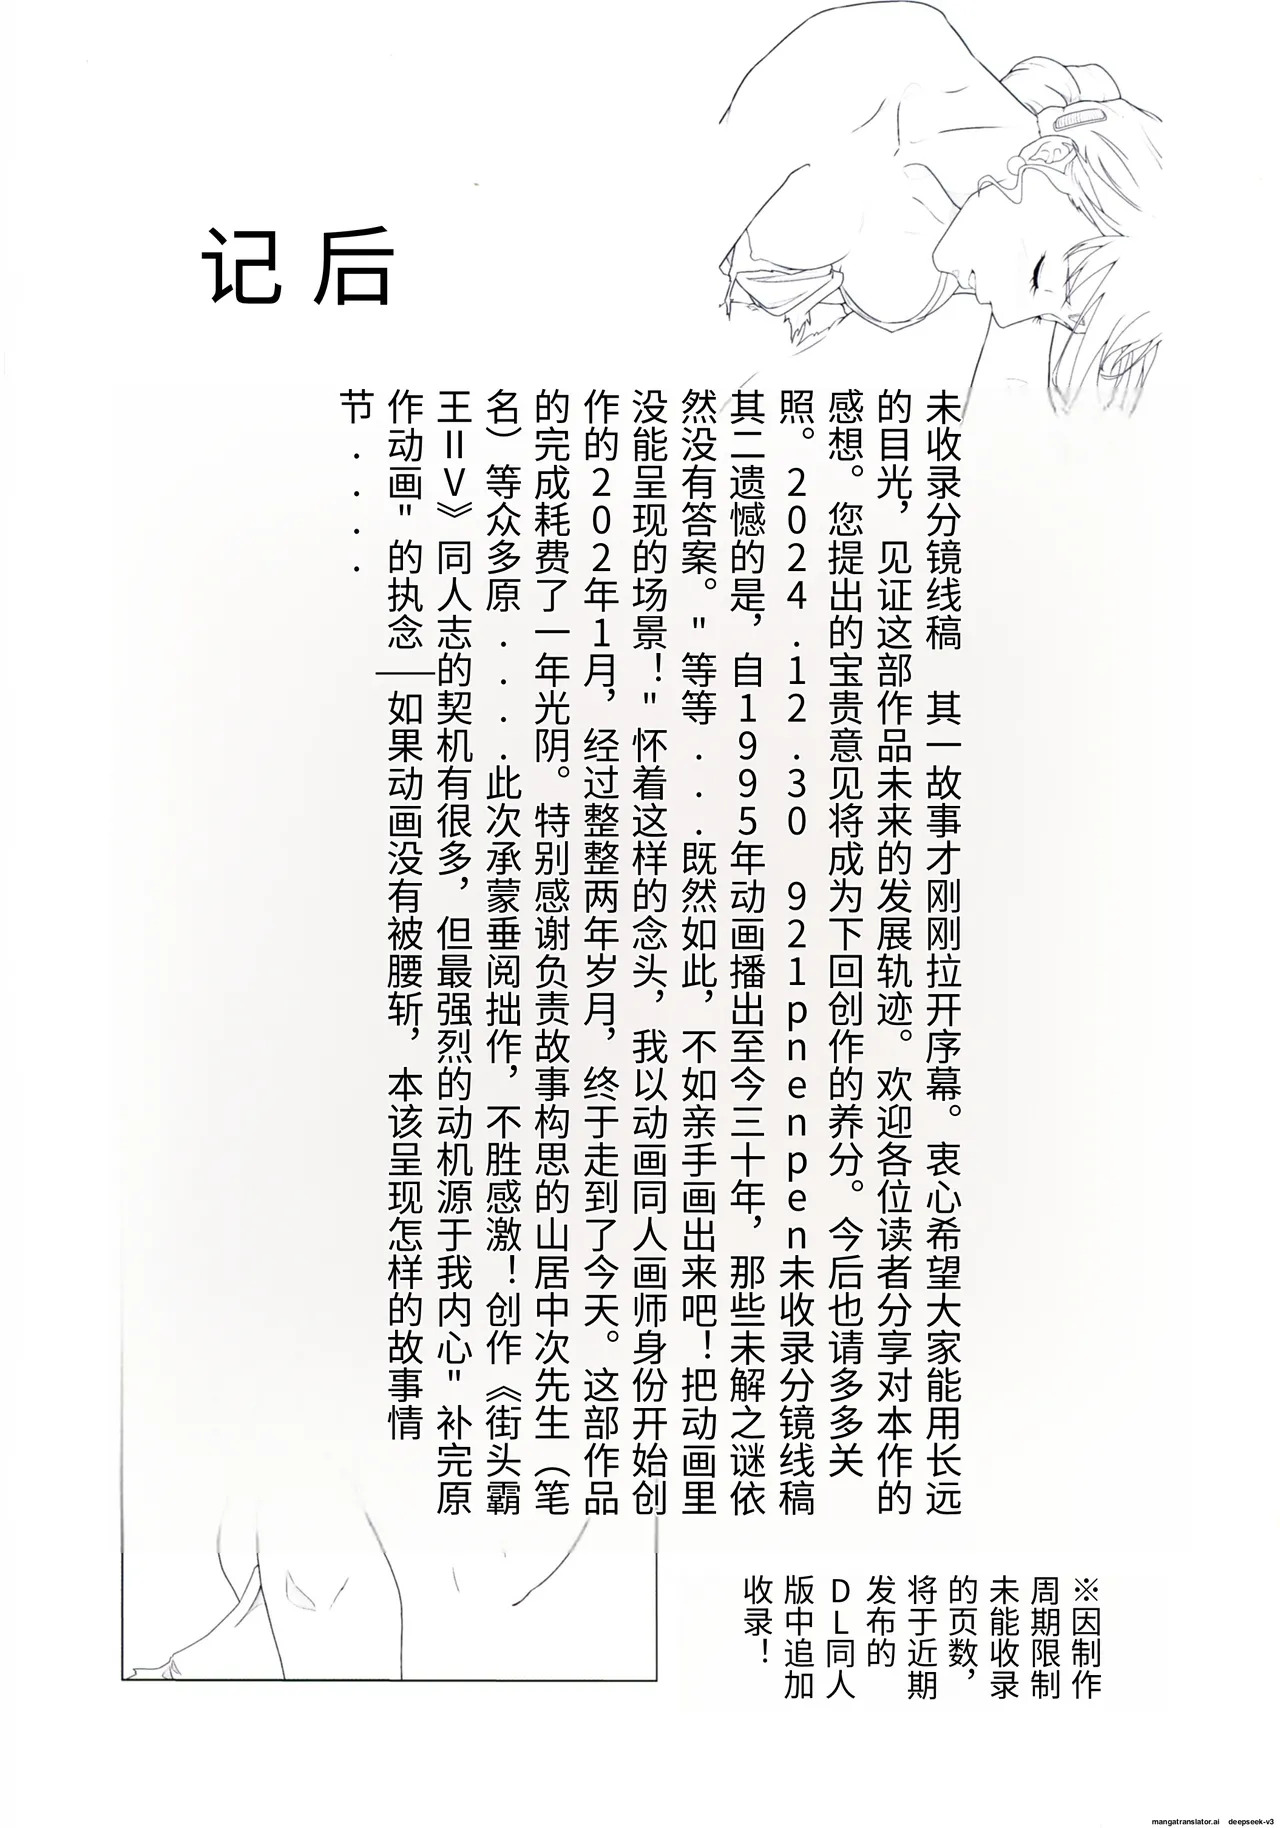 后记
未收录分镜线稿　其一故事才刚刚拉开序幕。衷心希望大家能用长远
的目光，见证这部作品未来的发展轨迹。欢迎各位读者分享对本作的
感想。您提出的宝贵意见将成为下回创作的养分。今后也请多多关
照。2024.12.30　921pnenpen未收录分镜线稿
其二遗憾的是，自1995年动画播出至今三十年，那些未解之谜依
然没有答案。"等等...既然如此，不如亲手画出来吧！把动画里
没能呈现的场景！"怀着这样的念头，我以动画同人画师身份开始创
作的202年1月，经过整整两年岁月，终于走到了今天。这部作品
的完成耗费了一年光阴。特别感谢负责故事构思的山居中次先生（笔
名）等众多原....此次承蒙垂阅拙作，不胜感激！创作《街头霸
王IIV》同人志的契机有很多，但最强烈的动机源于我内心"补完原
作动画"的执念——如果动画没有被腰斩，本该呈现怎样的故事情
节....
※因制作
周期限制
未能收录
的页数，
将于近期
发布的
DL同人
版中追加
收录！
mangatranslator.ai deepseek-v3